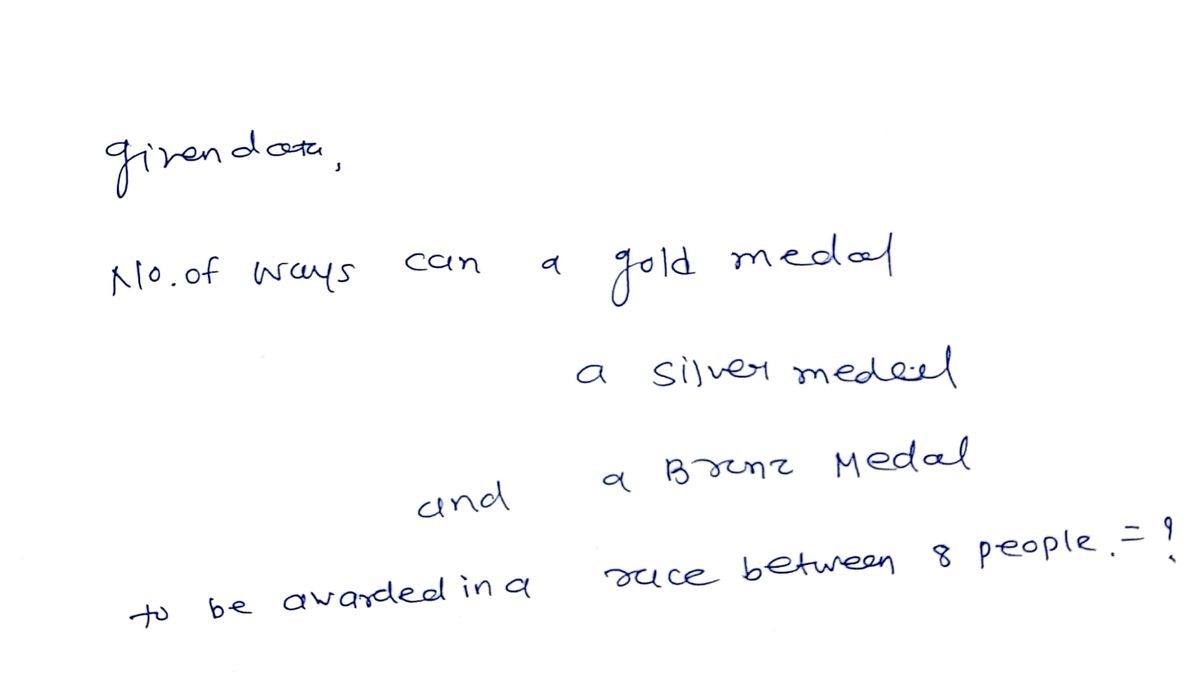 given data,
No. of ways can a gold medal
a silver medal
and a Bronz Medal
to be awarded in a race between 8 people. = ?